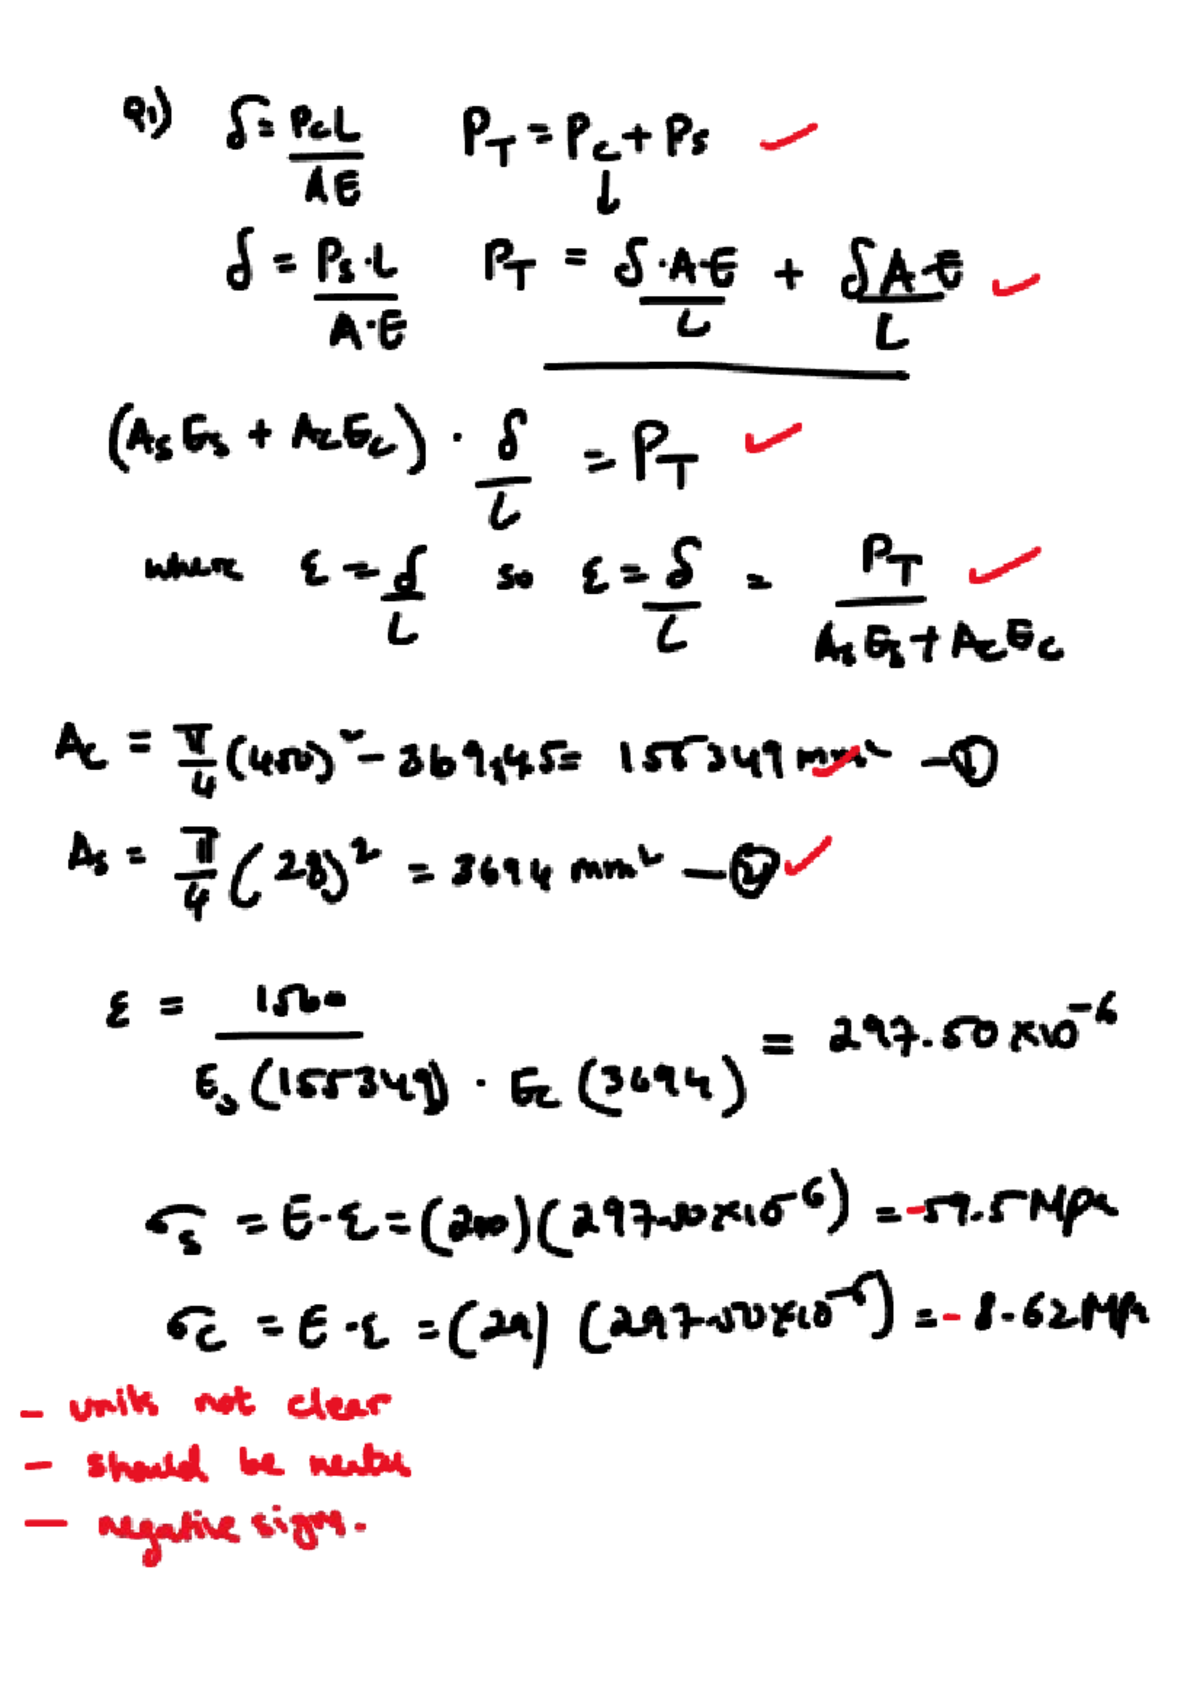 Q1) δ = PcL / AE    PT = Pc + Ps ✓
↓
δ = Ps·L / A·E    PT = δ·A·E / L + δA·E / L ✓
(AsEs + AcEc) · δ / L = PT ✓
where ε = δ / L so ε = δ / L = PT / AsEs + AcEc ✓
Ac = π/4 (450)² - 3694.45 = 155349 mm² — ① ✓
As = π/4 (28)² = 3694 mm² — ② ✓
ε = 1560 / Es (155349) · Ec (3694) = 297.50 x10⁻⁶
σs = E·ε = (200)(297.50x10⁻⁶) = -59.5 MPa
σc = E·ε = (29) (297.50x10⁻⁶) = - 8.62 MPa
- units not clear
- should be neater
- negative signs.